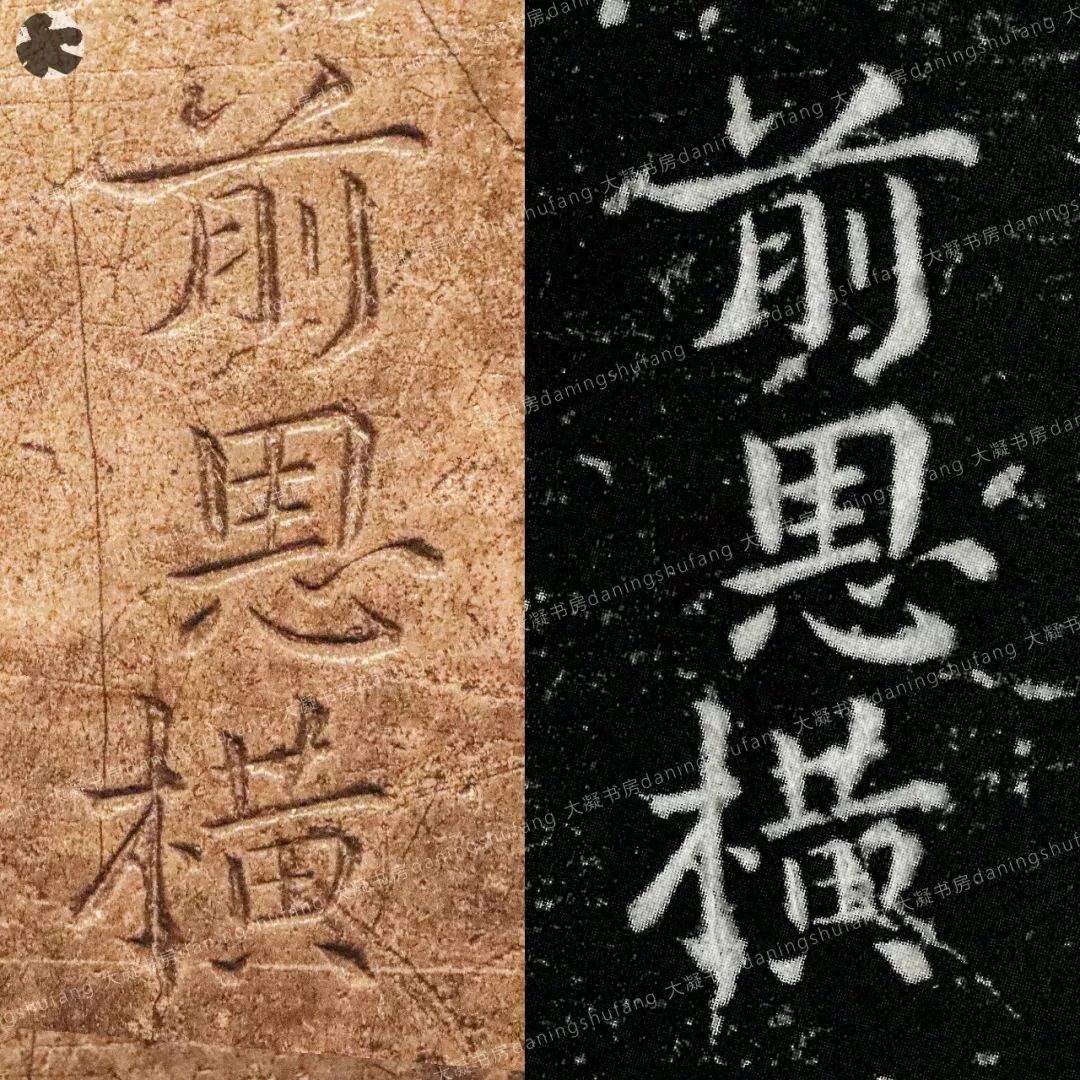 前橫
前橫
大凝书房daningshufang